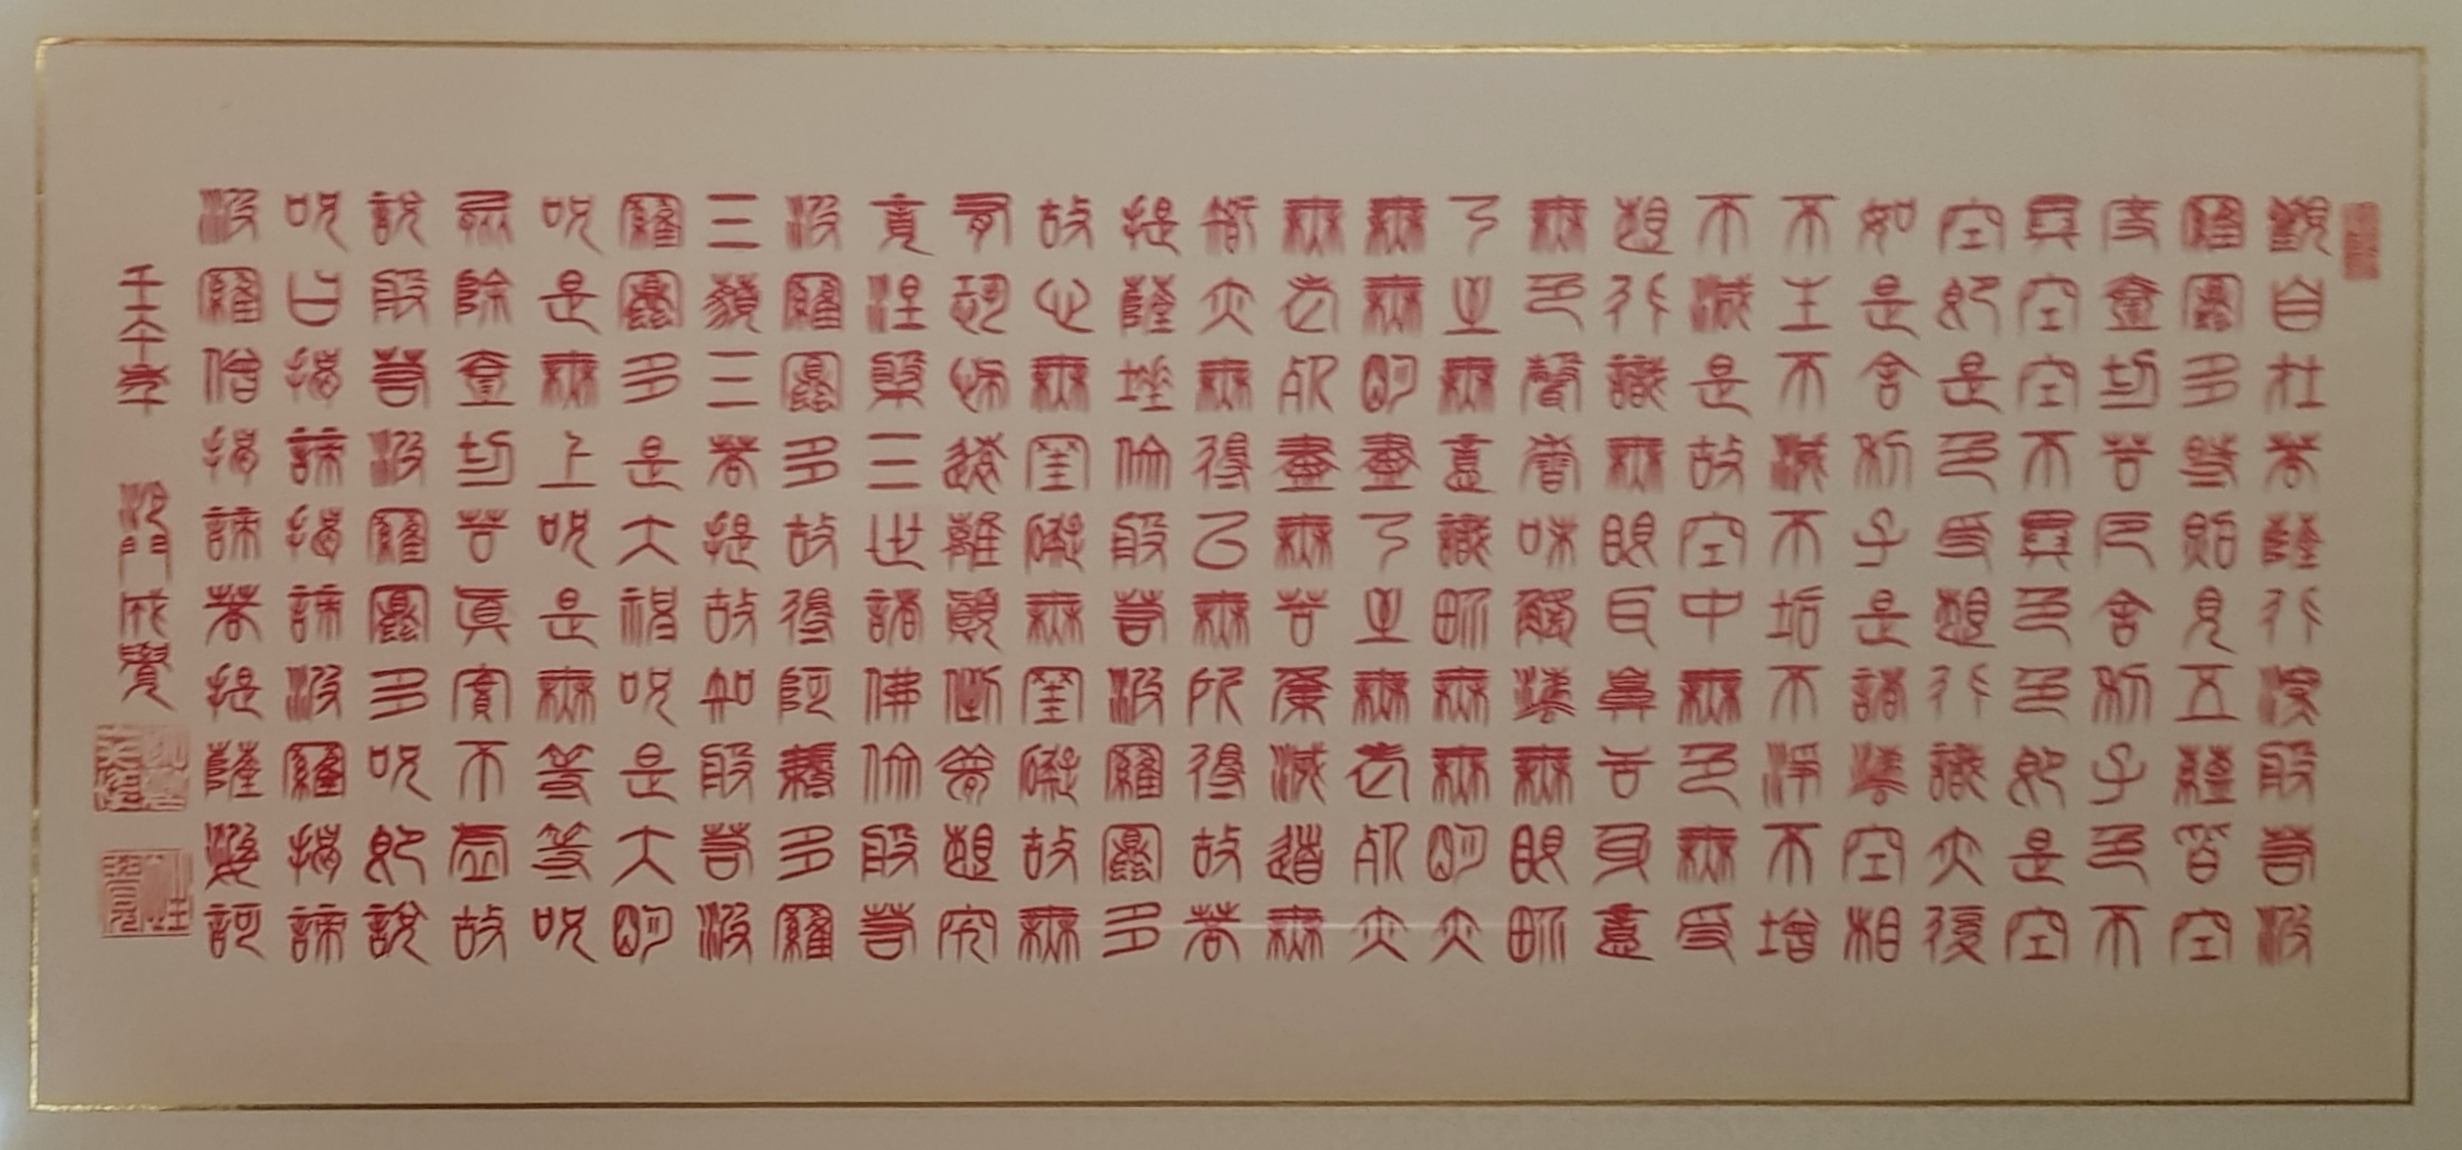 觀自在菩薩行深般若波
羅蜜多時照見五蘊皆空
度壹切苦厄舍利子色不
異空空不異色色即是空
空即是色受想行識亦復
如是舍利子是諸法空相
不生不滅不垢不淨不增
不減是故空中無色無受
想行識無眼耳鼻舌身意
無色聲香味觸法無眼界
乃至無意識界無無明亦
無無明盡乃至無老死亦
無老死盡無苦集滅道無
智亦無得以無所得故菩
提薩埵依般若波羅蜜多
故心無罣礙無罣礙故無
有恐怖遠離顛倒夢想究
竟涅槃三世諸佛依般若
波羅蜜多故得阿耨多羅
三藐三菩提故知般若波
羅蜜多是大神呪是大明
呪是無上呪是無等等呪
能除壹切苦眞實不虛故
說般若波羅蜜多呪即說
呪曰揭諦揭諦波羅揭諦
波羅僧揭諦菩提薩婆訶
壬午年 沙門成覺